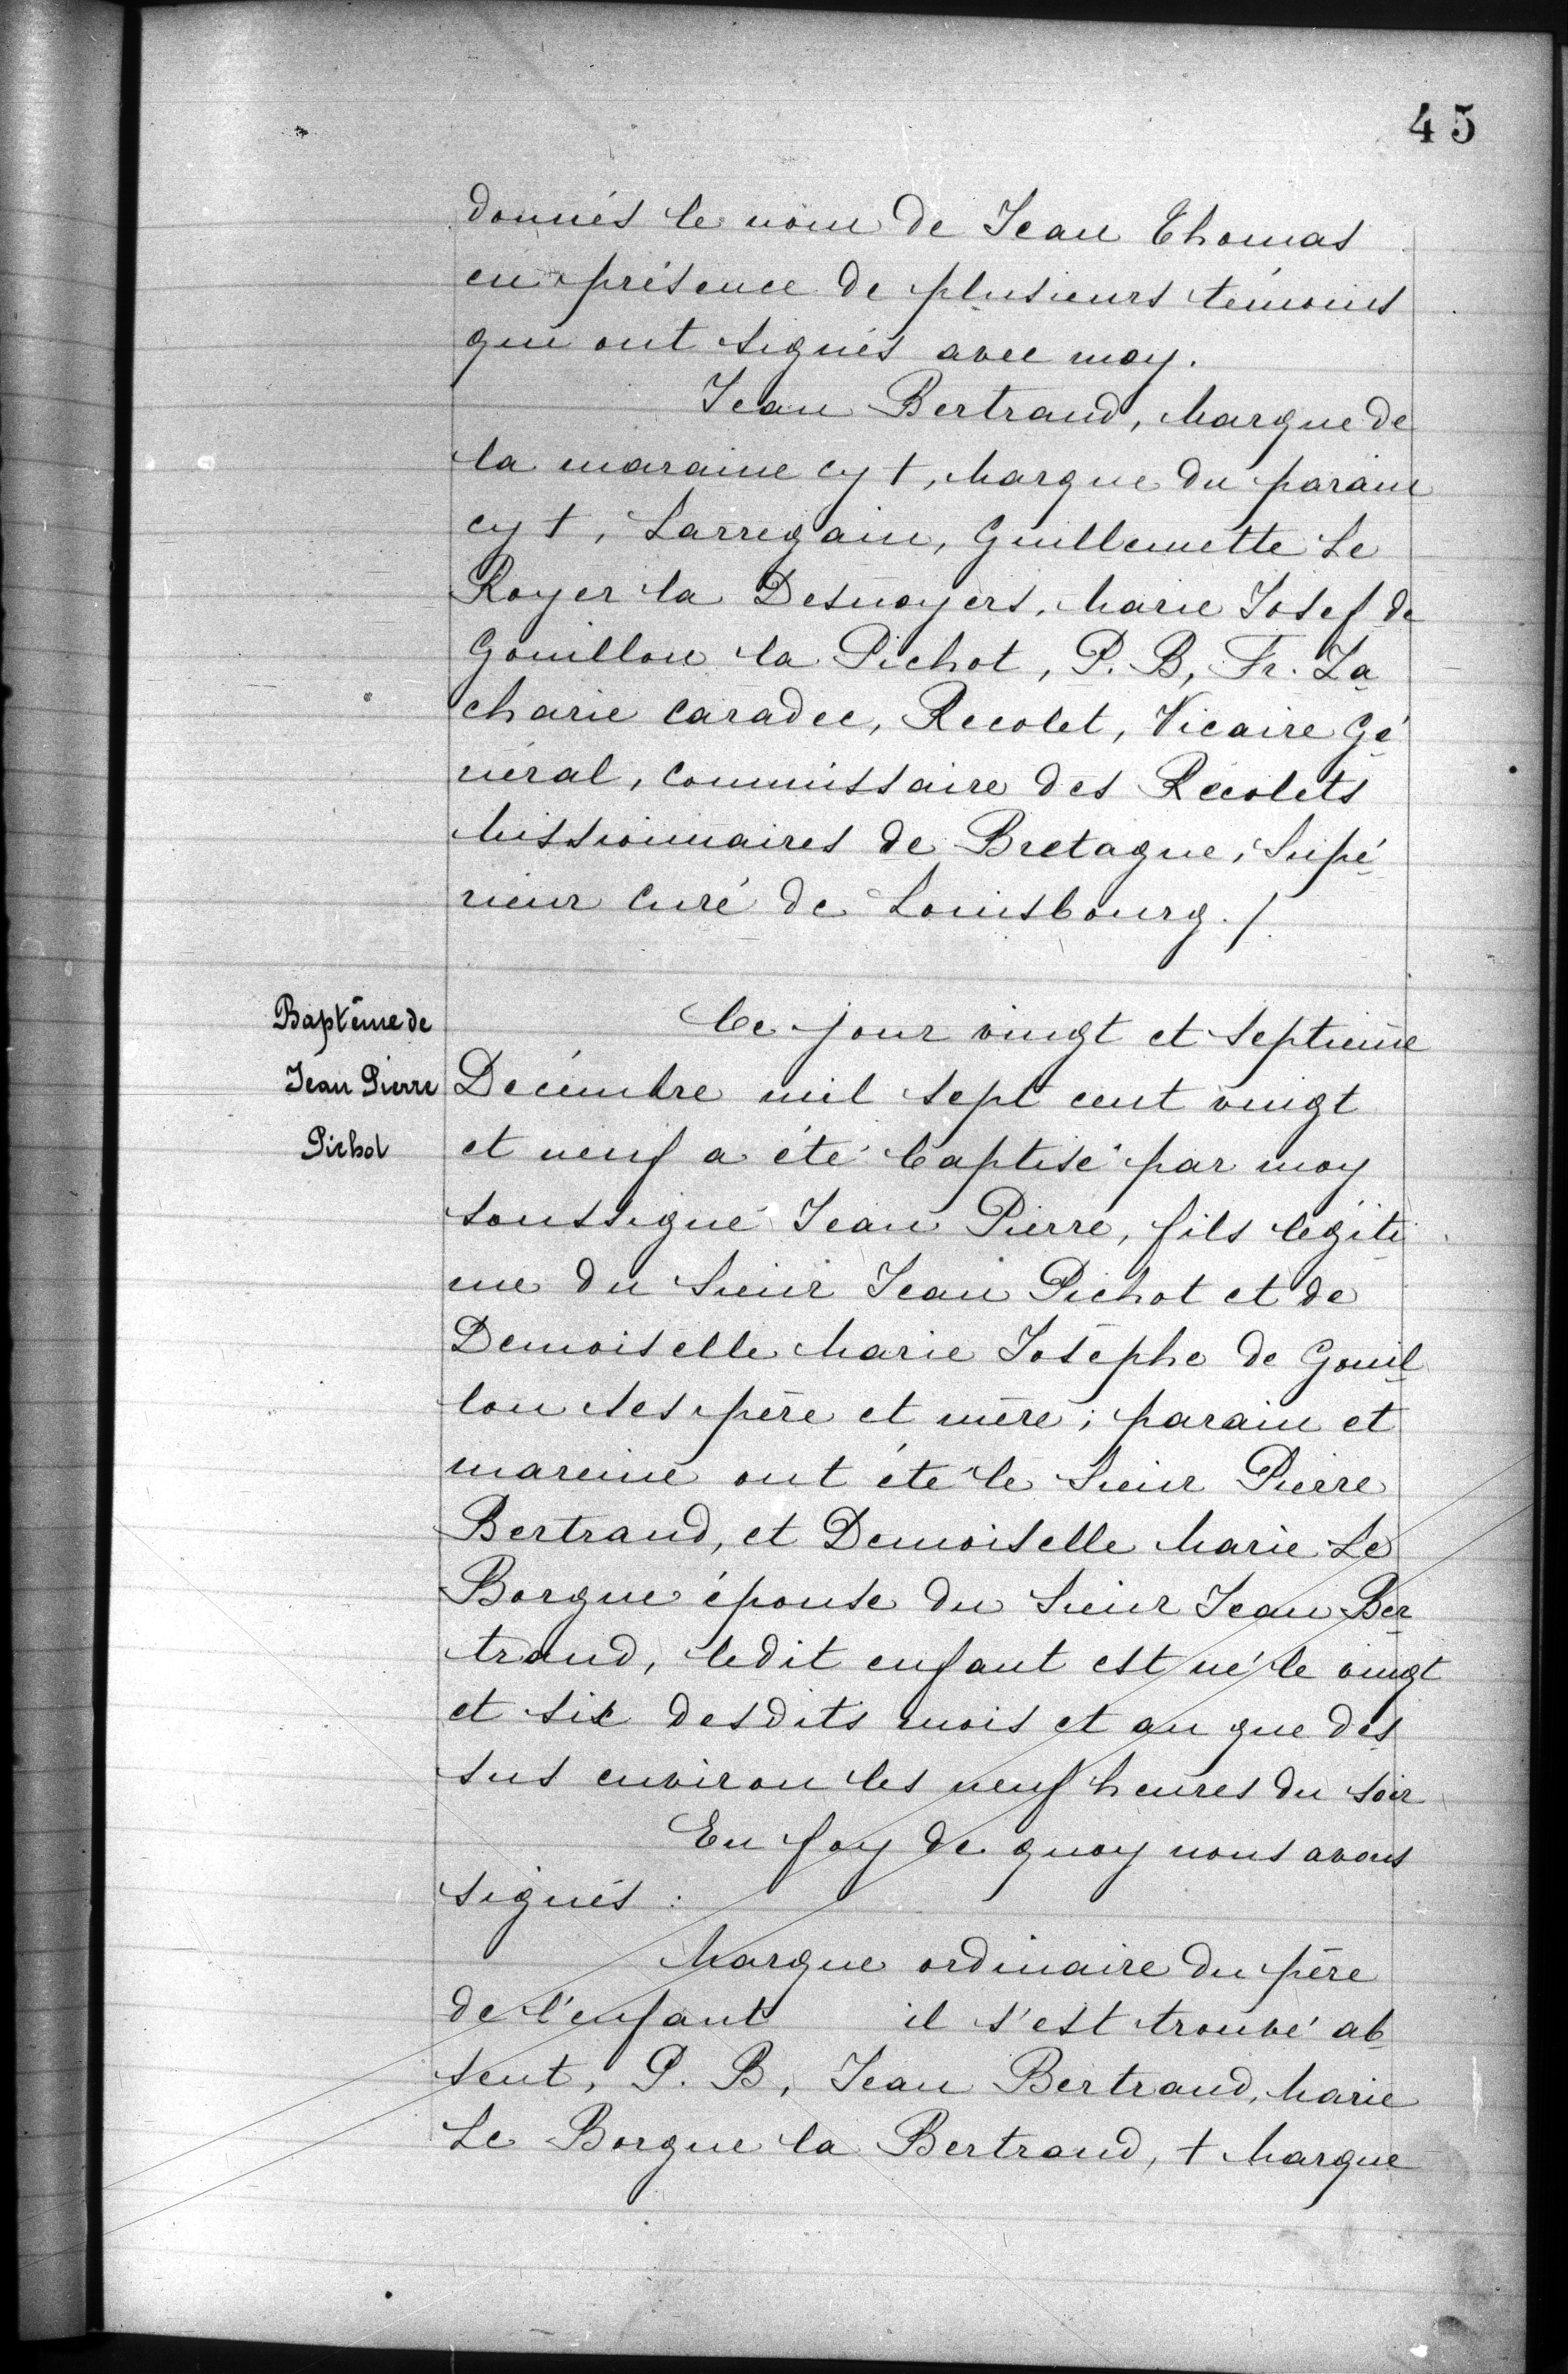 45
donnés le nom de Jean Thomas
en présence de plusieurs témoins
qui ont signés avec moy.
Jean Bertrand, Marque de
la maraine cy +, Marque du parain
cy +, Larregain, Guillemette Le
Royer la Desnoyers, Marie Josef de
Gouillon la Pichot, P. B, Fr. Za
charie Caradec, Recolet, Vicaire Gé
néral, Commissaire des Récolets
Missionnaires de Bretagne, Supé
rieur Curé de Louisbourg. /
Baptême de
Jean Pierre
Pichot
Ce jour vingt et septième
Décembre mil sept cent vingt
et neuf a été baptisé par moy
soussigné Jean Pierre, fils légiti
me du Sieur Jean Pichot et de
Demoiselle Marie Josèphe de Gouil
lon ses père et mère; parain et
mareine ont été le Sieur Pierre
Bertrand, et Demoiselle Marie Le
Borgne épouse du Sieur Jean Ber
trand, ledit enfant est né le vingt
et six desdits mois et an que des
sus environ les neuf heures du soir
En foy de quoy nous avons
signés :
Marque ordinaire du père
de l'enfant il s'est trouvé ab
sent, P. B, Jean Bertrand, Marie
Le Borgne la Bertrand, + Marque